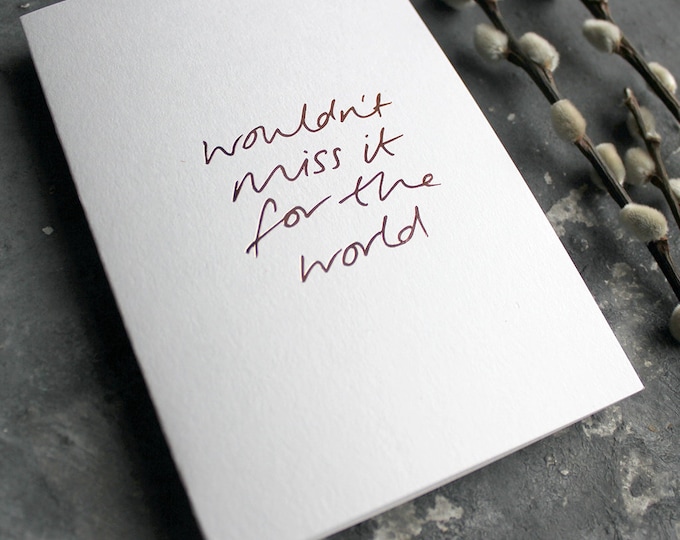 wouldn't
miss it
for the
world